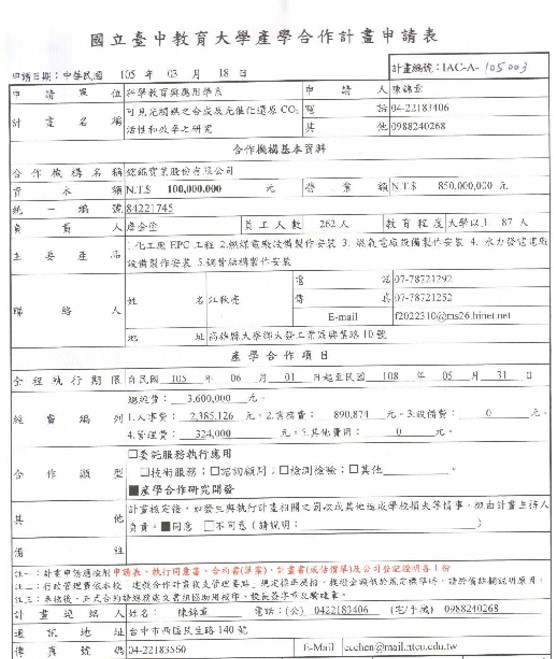 國立臺中教育大學產學合作計畫申請表
申請日期：中華民國 105 年 03 月 18 日
計畫編號：IAC-A-105003
申請單位 科學教育與應用學系 申請人 陳錦章
計畫名稱 可見光觸媒之合成及光催化還原 CO2 活性和效率之研究
電話 04-22183406
其他 0988240268
合作機構基本資料
合作機構名稱 實業股份有限公司
資本額 N.T.$ 100,000,000 元 營業額 N.T.$ 850,000,000 元
統一編號 84221745
負責人 員工人數 262人 教育程度 大學以上 87 人
主要產品 1.化工廠 EPC 工程 2.燃煤電廠設備製作安裝 3.燃氣電廠設備製作安裝 4.水力發電電廠
設備製作安裝 5.鋼骨結構製作安裝
聯絡人 姓名 江秋亮
電話 07-78721292
傳真 07-78721252
E-mail f2022310@ms26.hinet.net
地址 高雄縣大寮鄉大發工業區興業路 10 號
產學合作項目
全程執行期限 自民國 105 年 06 月 01 日起至民國 108 年 05 月 31 日
經費編列 總經費： 3,600,000 元。
1.人事費： 2,385,126 元。2.業務費： 890,874 元。3.設備費： 0 元。
4.管理費： 324,000 元。5.其他費用： 0 元。
合作類型 □委託服務執行應用
□技術服務；□諮詢顧問；□檢測檢驗；□其他
■產學合作研究開發
其他 計畫核定後，如發生與執行計畫相關之罰款或其他造成學校損失等情事，將由計畫主持人
負責。■同意 □不同意（請說明： ）
備註
註一：計畫申請應檢附申請表、執行同意書、合約書(草案)、計畫書(或估價單)及公司登記證明各 1 份
計畫連絡人 姓名： 陳錦章 電話：(公) 0422183406 (宅/手機) 0988240268
通訊地址 台中市西區民生路 140 號
傳真號碼 04-22183560 E-Mail ccchen@mail.ntcu.edu.tw